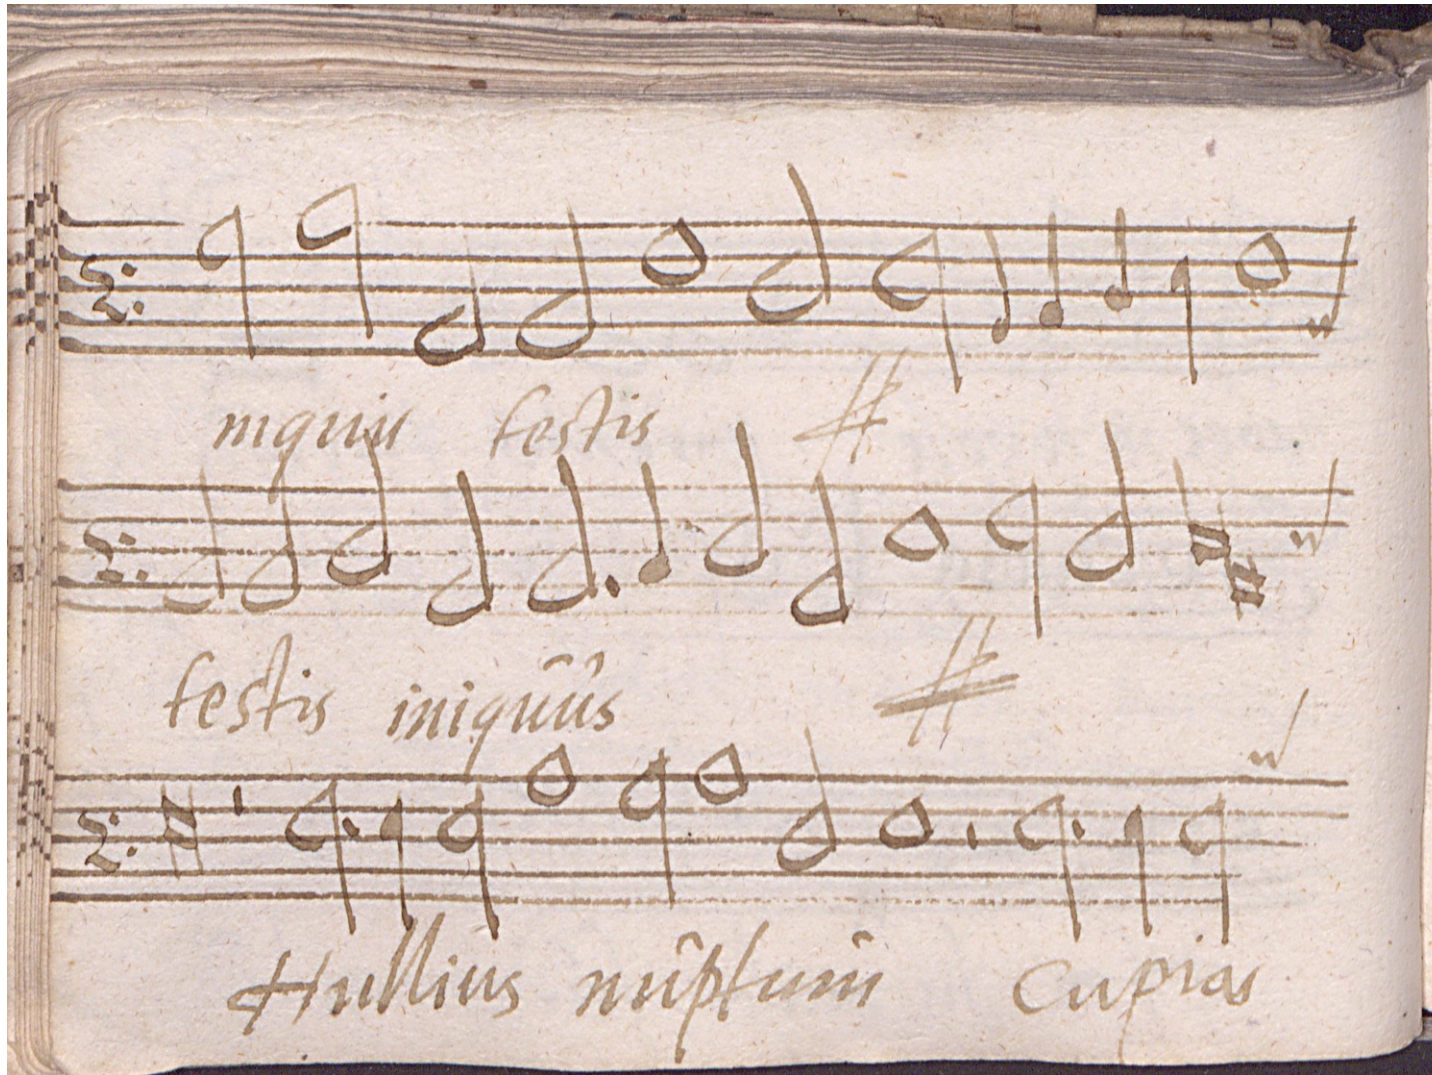 iniquus testis
testis iniquus
Nullius nuptum Cupias